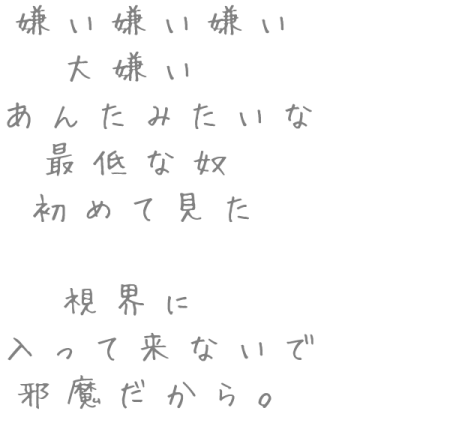 嫌い嫌い嫌い
大嫌い
あんたみたいな
最低な奴
初めて見た
視界に
入って来ないで
邪魔だから。